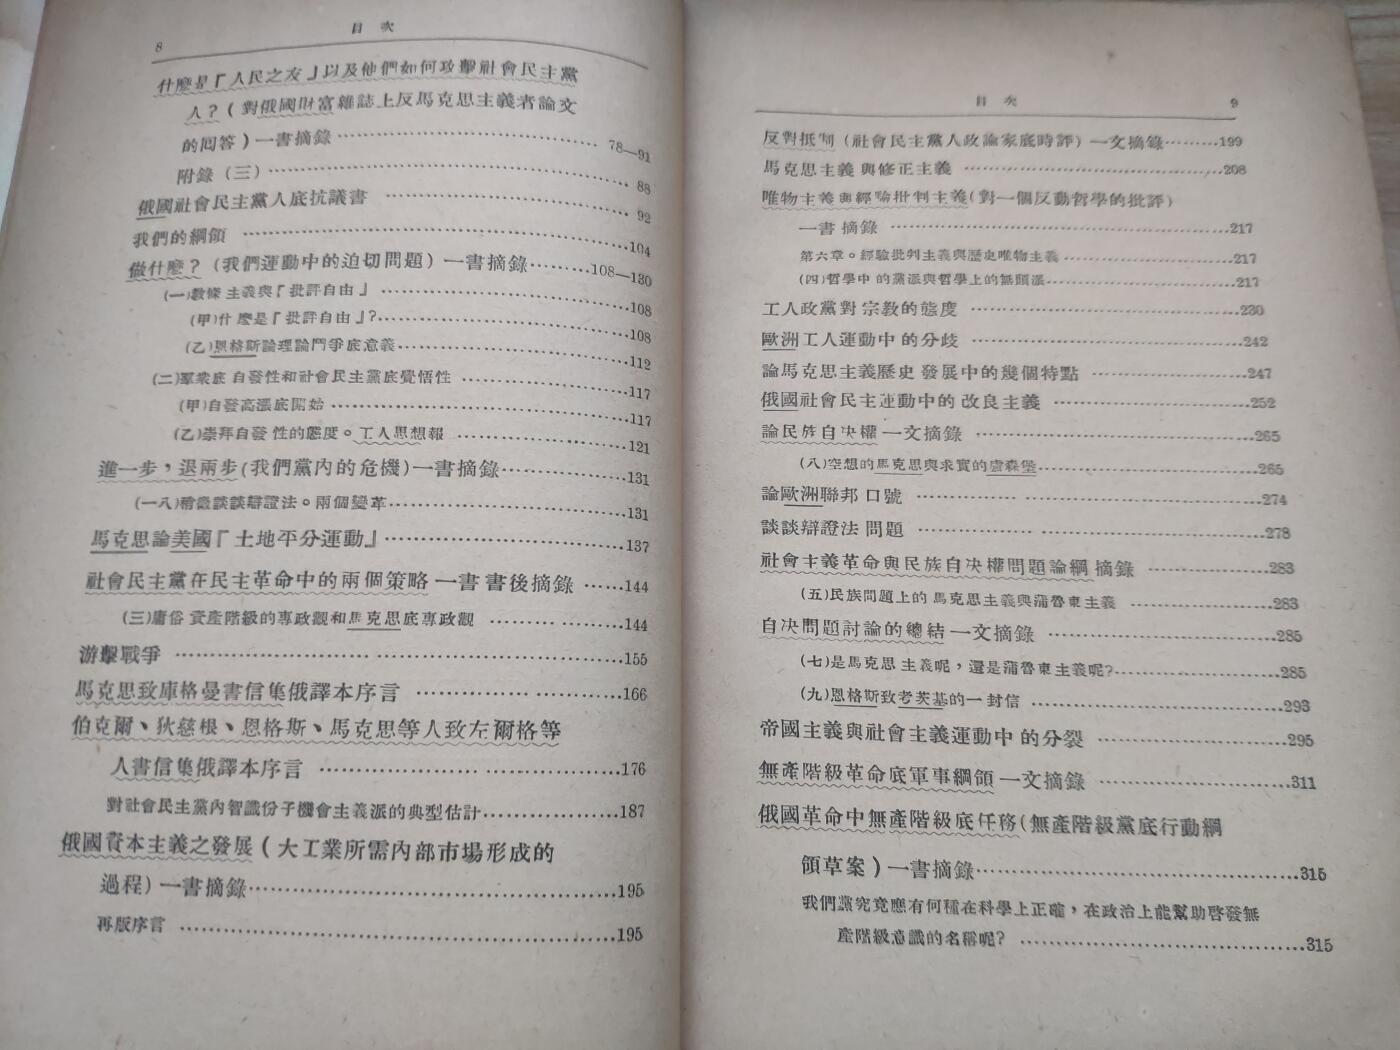 8
目 次
什麼是『人民之友』以及他們如何攻擊社會民主黨
人？(對俄國財富雜誌上反馬克思主義者論文
的回答)一書摘錄………………………………78—91
附錄(三)………………………………………………88
俄國社會民主黨人底抗議書………………………92
我們的綱領………………………………………104
做什麼？(我們運動中的迫切問題)一書摘錄………108—130
(一)教條主義與『批評自由』………………………108
(甲)什麼是『批評自由』?……………………………108
(乙)恩格斯論理論鬥爭底意義………………………112
(二)羣衆底自發性和社會民主黨底覺悟性…………117
(甲)自發高漲底開始…………………………………117
(乙)崇拜自發性的態度。工人思想報………………121
進一步，退兩步(我們黨內的危機)一書摘錄…………131
(一八)稍微談談辯證法。兩個變革…………………131
馬克思論美國『土地平分運動』………………………137
社會民主黨在民主革命中的兩個策略一書書後摘錄……144
(三)庸俗資產階級的專政觀和馬克思底專政觀………144
游擊戰爭………………………………………………155
馬克思致庫格曼書信集俄譯本序言…………………166
伯克爾、狄慈根、恩格斯、馬克思等人致左爾格等
人書信集俄譯本序言…………………………………176
對社會民主黨內智識份子機會主義派的典型估計……187
俄國資本主義之發展(大工業所需內部市場形成的
過程)一書摘錄………………………………………195
再版序言………………………………………………195
目 次
9
反對抵制(社會民主黨人政論家底時評)一文摘錄………199
馬克思主義與修正主義………………………………208
唯物主義與經驗批判主義(對一個反動哲學的批評)
一書摘錄………………………………………………217
第六章。經驗批判主義與歷史唯物主義……………217
(四)哲學中的黨派與哲學上的無頭派………………217
工人政黨對宗教的態度………………………………230
歐洲工人運動中的分歧………………………………242
論馬克思主義歷史發展中的幾個特點………………247
俄國社會民主運動中的改良主義……………………252
論民族自決權一文摘錄………………………………265
(八)空想的馬克思與求實的盧森堡…………………265
論歐洲聯邦口號………………………………………274
談談辯證法問題………………………………………278
社會主義革命與民族自決權問題論綱摘錄…………283
(五)民族問題上的馬克思主義與蒲魯東主義………283
自決問題討論的總結一文摘錄………………………285
(七)是馬克思主義呢，還是蒲魯東主義呢?…………285
(九)恩格斯致考茨基的一封信………………………293
帝國主義與社會主義運動中的分裂…………………295
無產階級革命底軍事綱領一文摘錄…………………311
俄國革命中無產階級底任務(無產階級黨底行動綱
領草案)一書摘錄……………………………………315
我們黨究竟應有何種在科學上正確，在政治上能幫助啓發無
產階級意識的名稱呢?………………………………315